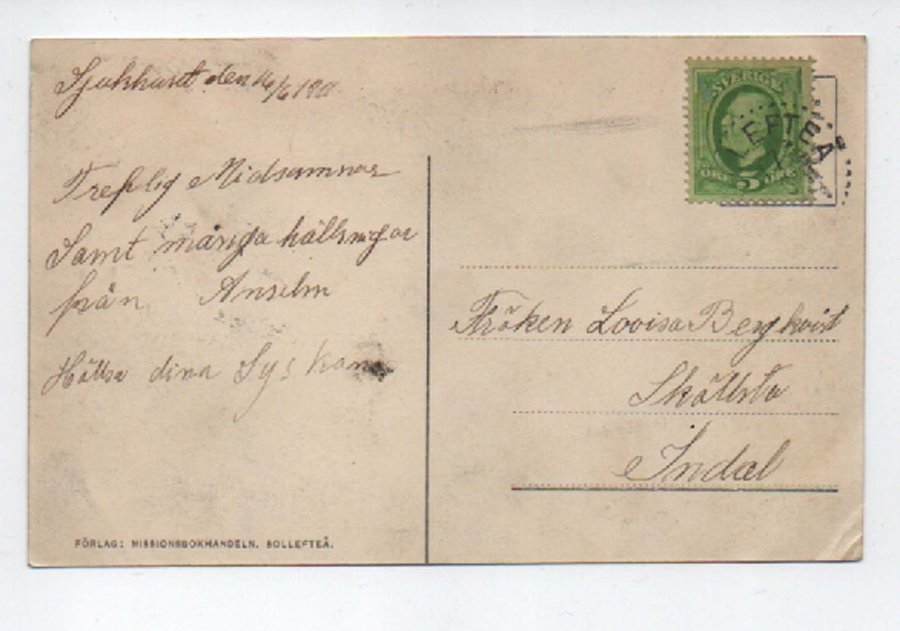 Sjukhuset den 16/6 190
Treflig Midsommar
Samt många hälsningar
från Anselm
Hälsa dina Syskon
FÖRLAG: MISSIONSBOKHANDELN, SOLLEFTEÅ.
SVERIGE
ÖRE 5 ÖRE
EFTEÅ
Fröken Lovisa Bergkvist
Skällsta
Indal